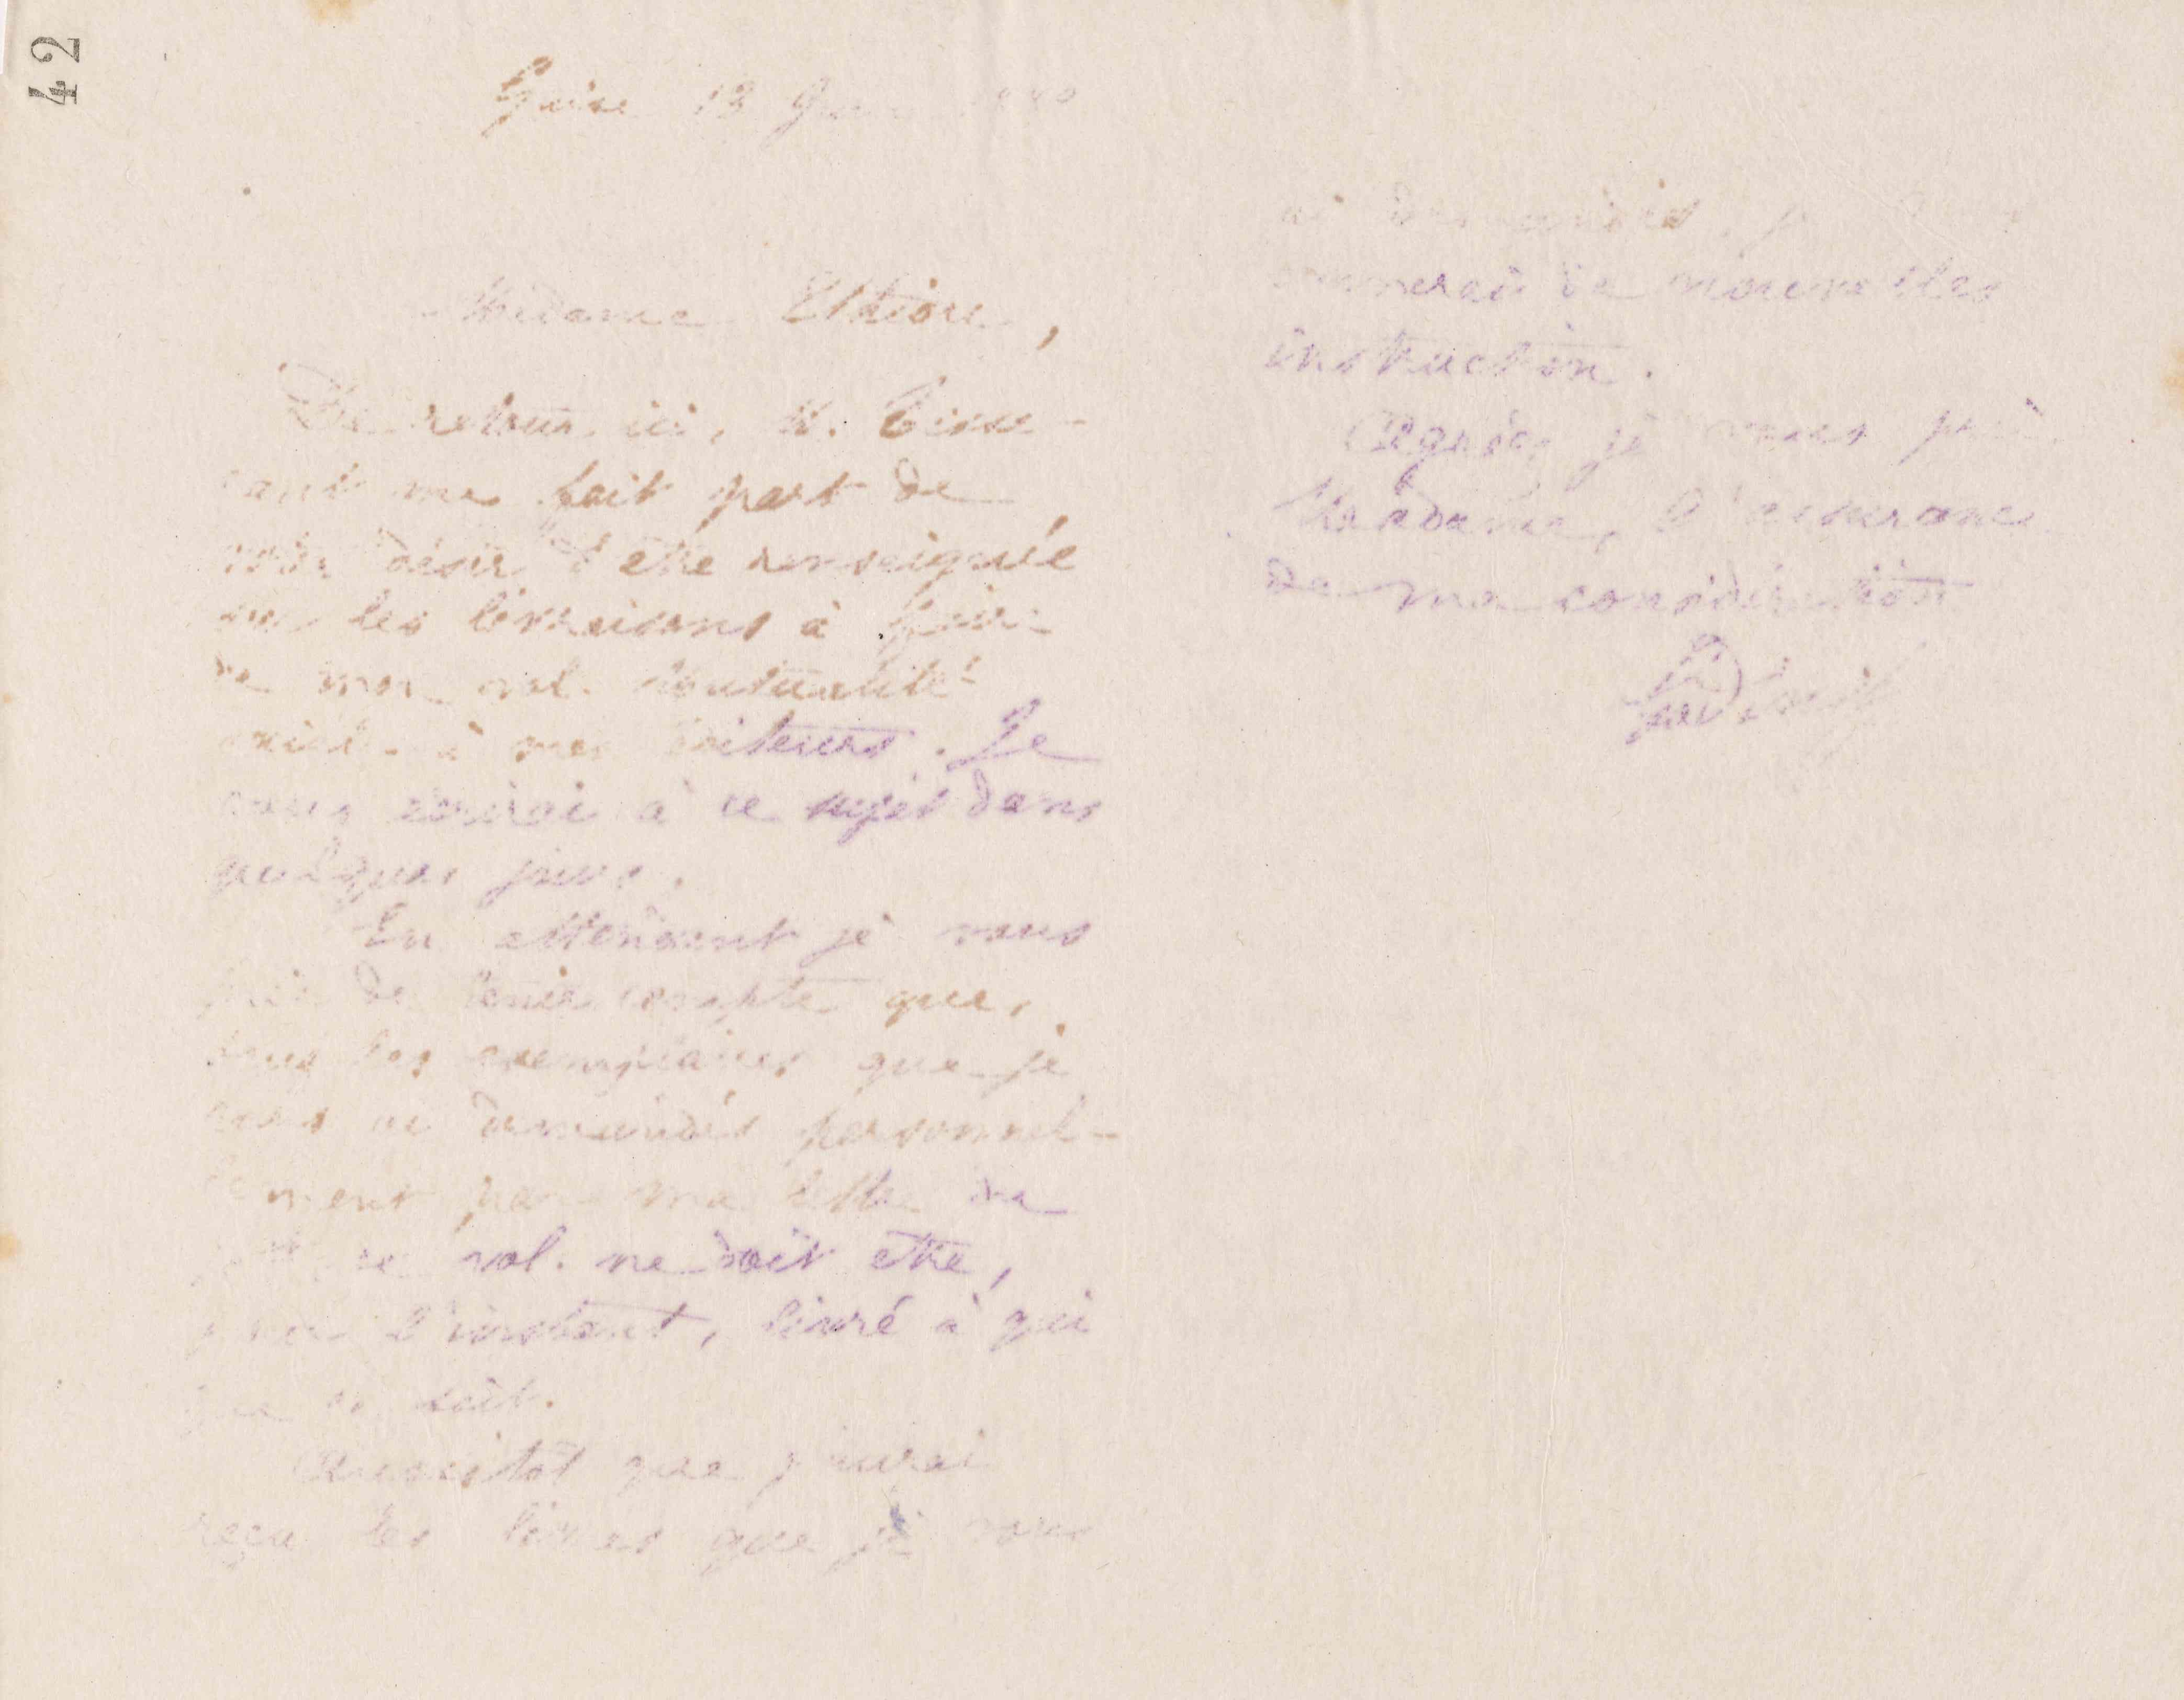 42
Guise 13
Madame
De retour ici, M.
me fait part de
votre désir d'être renseignée
sur les livraisons à faire
de mon vol. Mutualité
à mes éditeurs. Je
vous écrirai à ce sujet dans
quelques jours.
En attendant je vous
prie de tenir compte que,
les exemplaires que je
vous ai demandés personnel-
lement par ma lettre du
ce vol. ne doit être,
pour l'instant, livré à qui
que ce soit.
Aussitôt que j'aurai
reçu les livres que je vous
ai demandés, je
donnerai de nouvelles
instruction.
Agréez je vous prie
Madame, l'assurance
de ma considération